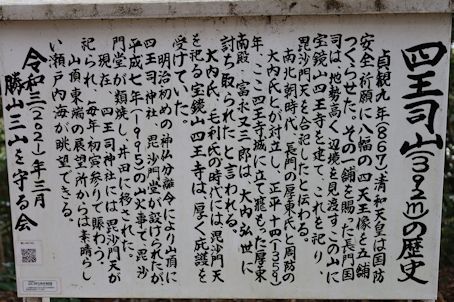 四王司山(392m)の歴史
貞観九年(867)清和天皇は国防
安全祈願に八幅の四天王像を五鋪
つくらせた。その一鋪を賜った長門国
司は、地勢高く辺境を見渡すこの山に
宝鏡山四王寺を建て、これを祀り、
毘沙門天を合記したと伝わる。
南北朝時代、長門の厚東氏と周防の
大内氏とが対立し、正平十四(1351)
年、ここ四王寺城に立て籠もった厚東
南殿、富永又三郎は、大内弘世に
討ち取られたと言われる。
大内氏、毛利氏の時代には毘沙門天
を祀る宝鏡山四王寺は、厚く庇護を
受けていた。
明治初めの神仏分離令により山頂に
四王司神社、毘沙門堂が設けられたが
平成七年(1995)の山火事で、毘沙
門堂が類焼し、井田に移された。
現在、四王司神社には、毘沙門天が
祀られ、毎年初寅参りで賑わう。
山頂東端の展望所からは素晴らし
い瀬戸内海が眺望できる。
令和三(2021)年三月
勝山三山を守る会